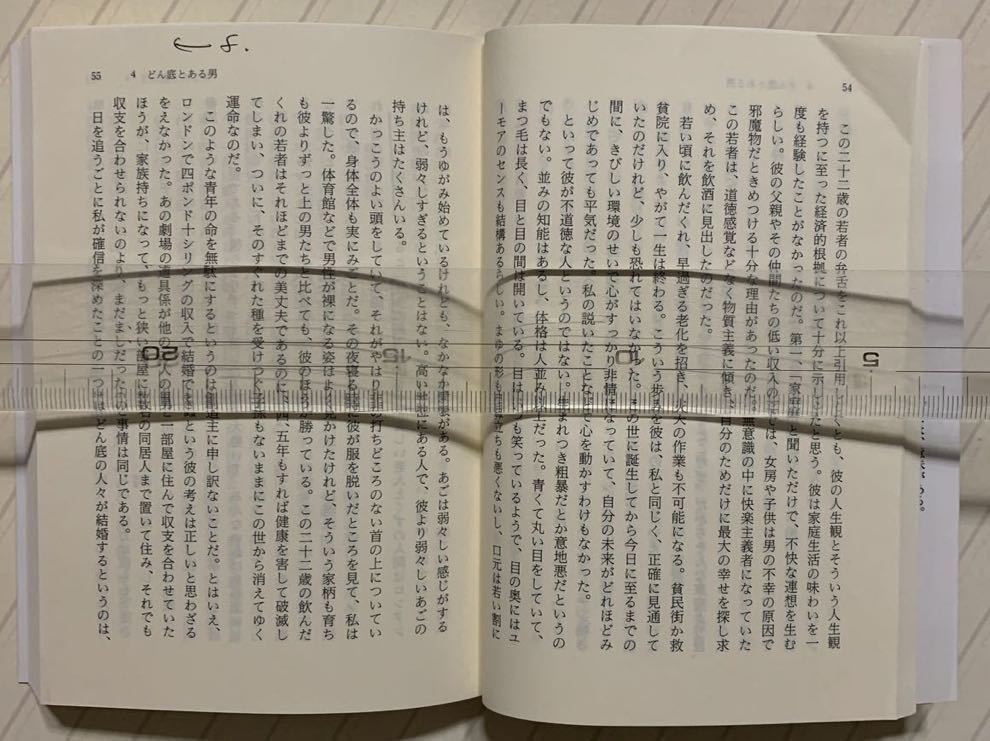 54
この二十二歳の若者の弁舌をこれ以上引用しなくとも、彼の人生観とそういう人生観
を持つに至った経済的根拠について十分に示しえたと思う。彼は家庭生活の味わいを一
度も経験したことがなかったのだ。第一、「家庭」と聞いただけで、不快な連想を生む
らしい。彼の父親やその仲間たちの低い収入の下では、女房や子供は男の不幸の原因で
邪魔物だときめつける十分な理由があったのだ。無意識の中に快楽主義者になっていた
この若者は、道徳感覚などなく物質主義に傾き、自分のためだけに最大の幸せを探し求
め、それを飲酒に見出したのだった。
若い頃に飲んだくれ、早過ぎる老化を招き、火夫の作業も不可能になる。貧民街か救
貧院に入り、やがて一生は終わる。こういう歩みを彼は、私と同じく、正確に見通して
いたのだけれど、少しも恐れてはいなかった。この世に誕生してから今日に至るまでの
間に、きびしい環境のせいで心がすっかり非情になっていて、自分の未来がどれほどみ
じめであっても平気だった。私の説いたことなどで心を動かすわけもなかった。
といって彼が不道徳な人というのではない。生まれつき粗暴だとか意地悪だというの
でもない。並みの知能はあるし、体格は人並み以上だった。青くて丸い目をしていて、
まつ毛は長く、目と目の間は開いている。目はいつも笑っているようで、目の奥にはユ
ーモアのセンスも結構あるらしい。まゆの形も目鼻立ちも悪くないし、口元は若い割に
55 4 どん底とある男
は、もうゆがみ始めているけれども、なかなか愛嬌がある。あごは弱々しい感じがする
けれど、弱々しすぎるということはない。高い地位にある人で、彼より弱々しいあごの
持ち主はたくさんいる。
かっこうのよい頭をしていて、それがやはり非の打ちどころのない首の上についてい
るので、身体全体も実にみごとだ。その夜寝る時に彼が服を脱いだところを見て、私は
一驚した。体育館などで男性が裸になる姿はよく見かけたけれど、そういう家柄も育ち
も彼よりずっと上の男たちと比べても、彼のほうが勝っている。この二十二歳の飲んだ
くれの若者はそれほどまでの美丈夫であるのに、四、五年もすれば健康を害して破滅し
てしまい、ついに、そのすぐれた種を受けつぐ子孫もないままにこの世から消えてゆく
運命なのだ。
このような青年の命を無駄にするというのは創造主に申し訳ないことだ。とはいえ、
ロンドンで四ポンド十シリングの収入で結婚できぬという彼の考えは正しいと思わざる
をえなかった。あの劇場の道具係が他の二人の男と一部屋に住んで収支を合わせていた
ほうが、家族持ちになって、もっと狭い部屋に数名の同居人まで置いて住み、それでも
収支を合わせられないのより、まだましだったのと事情は同じである。
一日を追うごとに私が確信を深めたことの一つは、どん底の人々が結婚するというのは、
5
10
15
20